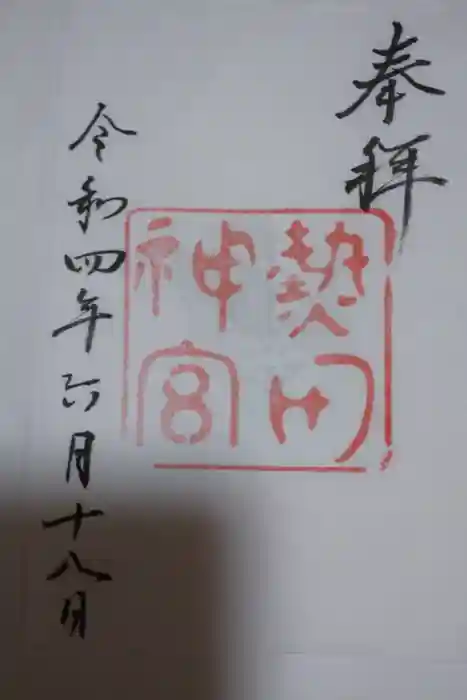 奉拝
熱田
神宮
令和四年六月十八日